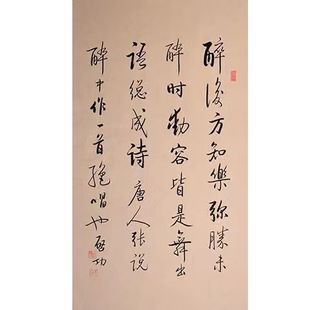 醉後方知樂弥勝未
醉时動容皆是舞出
語總成詩唐人張説
醉中作一首絶唱也啓功